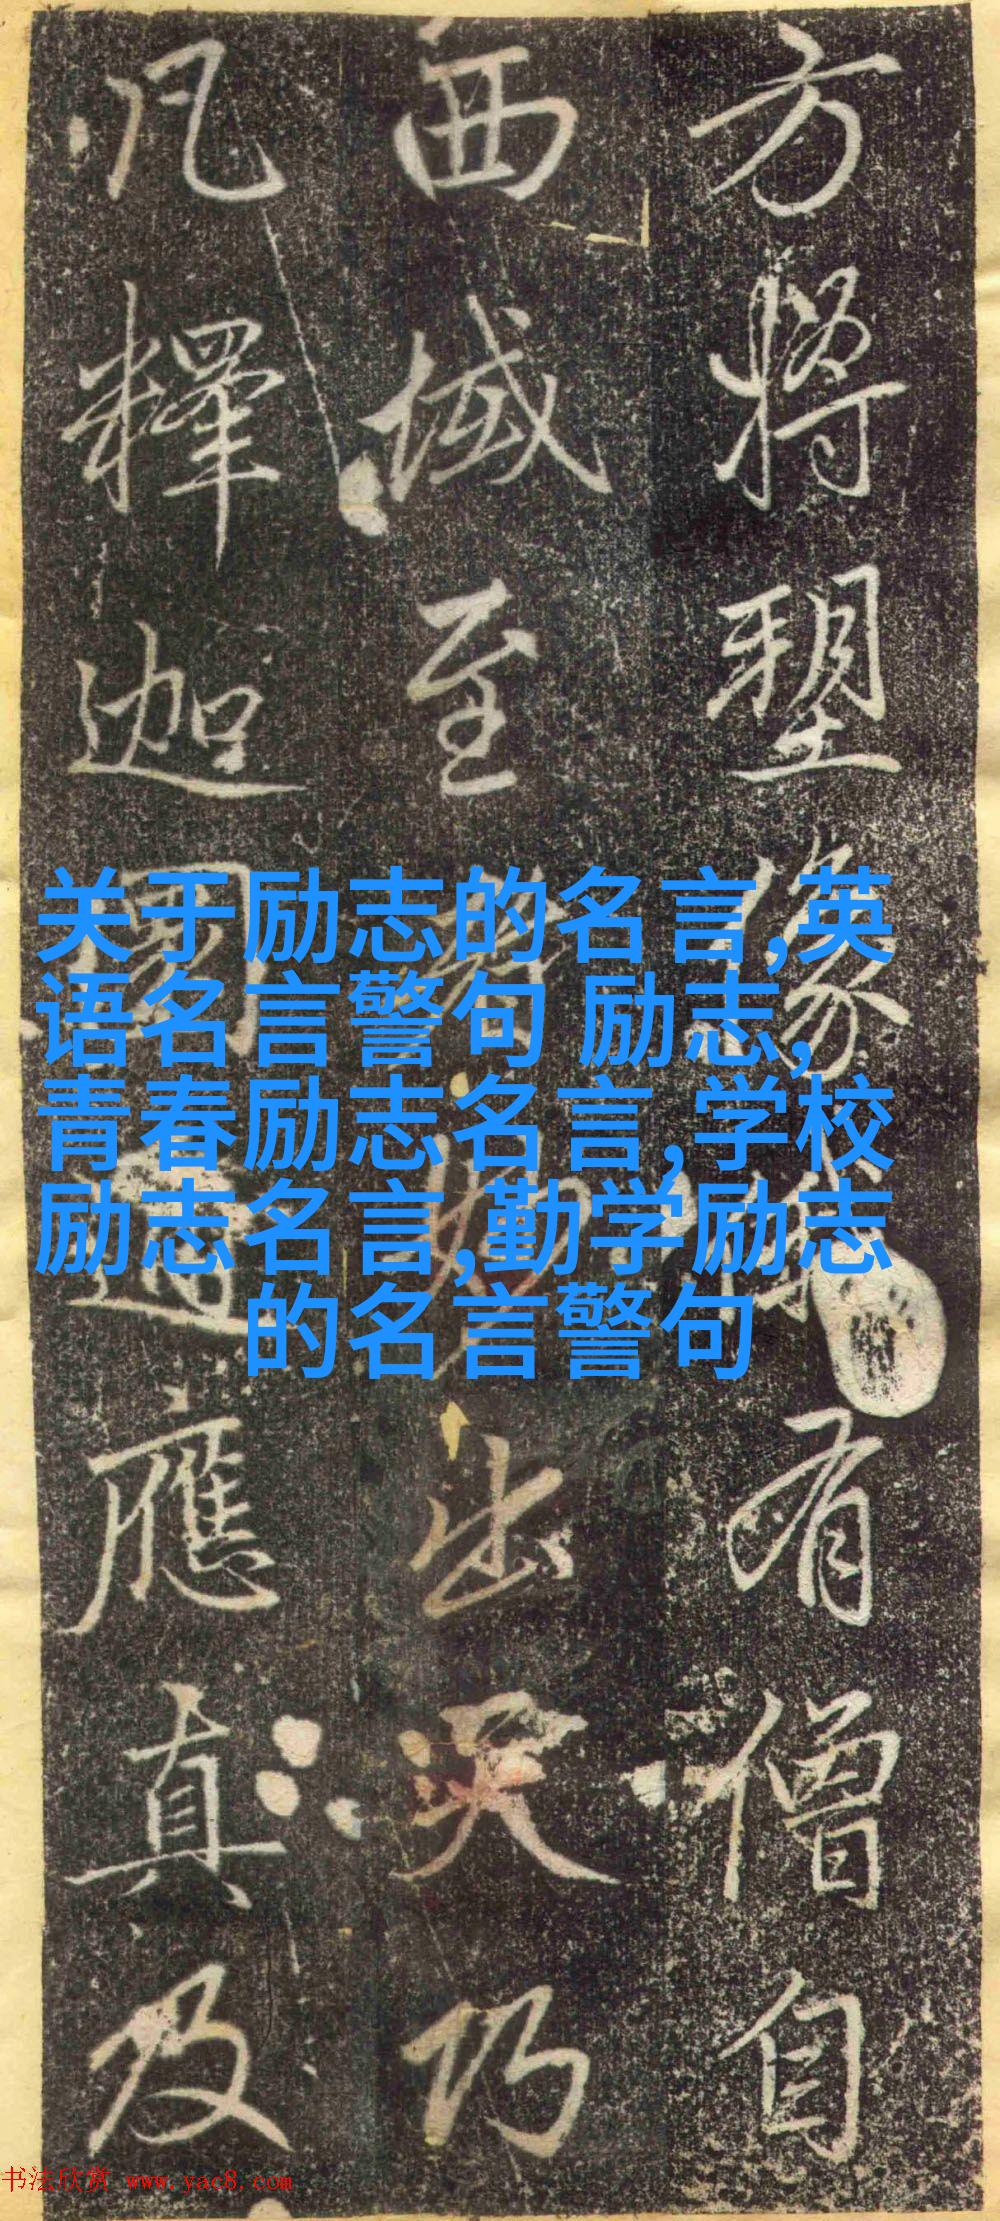 方將塑像有僧自
西域至出天
凡釋迦應真及
关于励志的名言,英
语名言警句 励志,
青春励志名言,学校
励志名言,勤学励志
的名言警句
书法欣赏 www.yac8.com